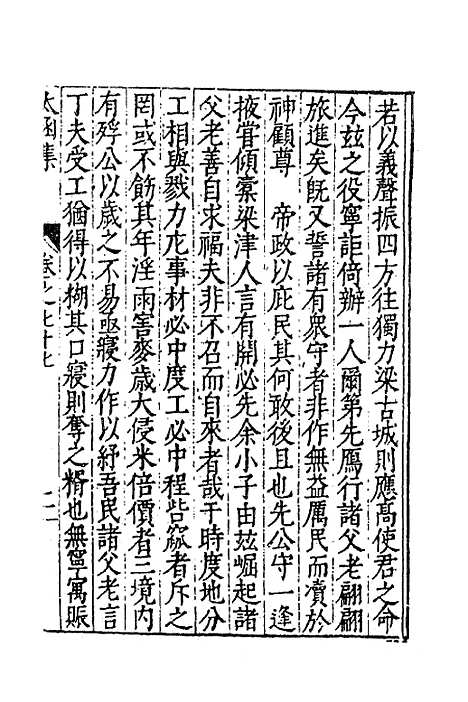 若以義聲振四方往獨力梁古城則應高使君之命
今玆之役寧詎倚辦一人爾第先鴈行諸父老翩翩
旅進矣旣又誓諸有衆守者非作無益厲民而瀆於
神顧尊　帝政以庇民其何敢後且也先公守一逢
掖甞傾槖梁津人言有開必先余小子由玆崛起諸
父老善自求福夫非不召而自來者哉干時度地分
工相與戮力庀事材必中度工必中程呰窳者斥之
罔或不飭其年淫雨害麥歲大侵米倍價者三境內
有殍公以歲之不易亟寢力作以紓吾民諸父老言
丁夫受工猶得以糊其口寢則奪之糈也無寧寓賑
太函集
卷之七十七